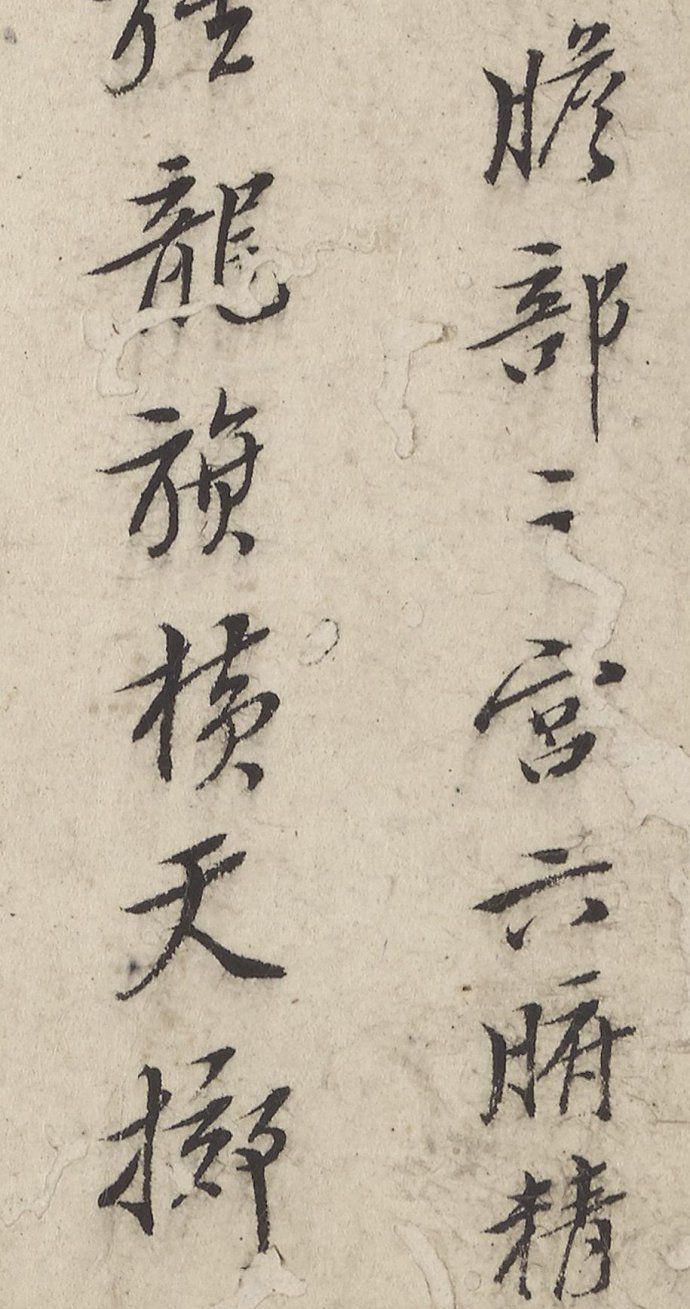 膽部之宮六腑精
龍旗橫天擲